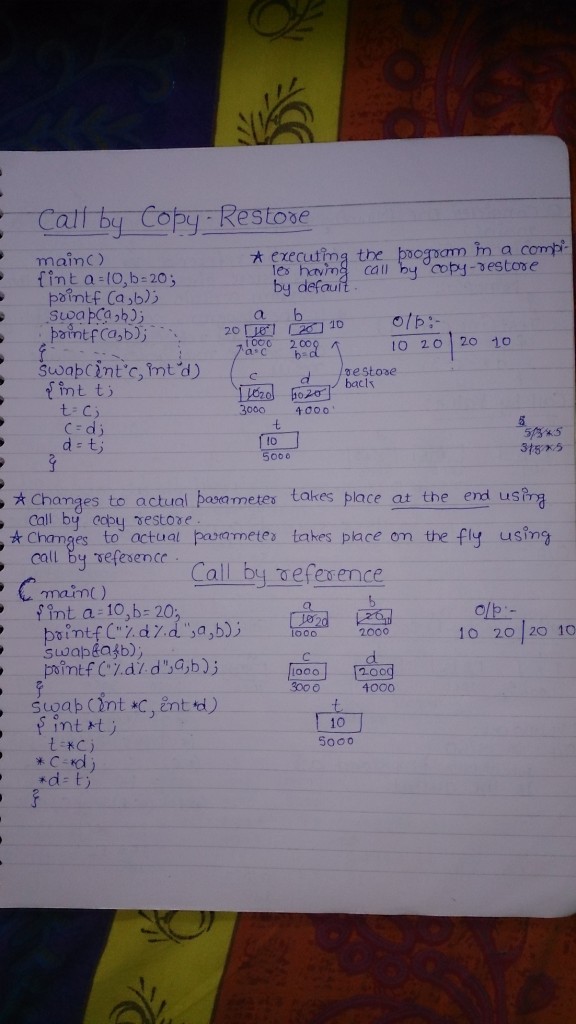 Call by Copy-Restore
main()
{int a=10,b=20;
printf (a,b);
swap(a,b);
printf(a,b);
}
swap(int c, int d)
{int t;
t=c;
c=d;
d=t;
}
* executing the program in a compi-
ler having call by copy-restore
by default.
a b
20 10 20 10
1000 2000
a=c b=d
c d
10 20 10 20
3000 4000
restore
back
t
10
5000
O/p:-
10 20 | 20 10
* Changes to actual parameter takes place at the end using
call by copy restore.
* Changes to actual parameter takes place on the fly using
call by reference.
Call by reference
main()
{int a=10,b=20;
printf("%d%d",a,b);
swap(&a,&b);
printf("%d%d",a,b);
}
swap(int *c, int *d)
{int *t;
t=*c;
*c=*d;
*d=t;
}
a b
10 20 20 10
1000 2000
c d
1000 2000
3000 4000
t
10
5000
O/p:-
10 20 | 20 10